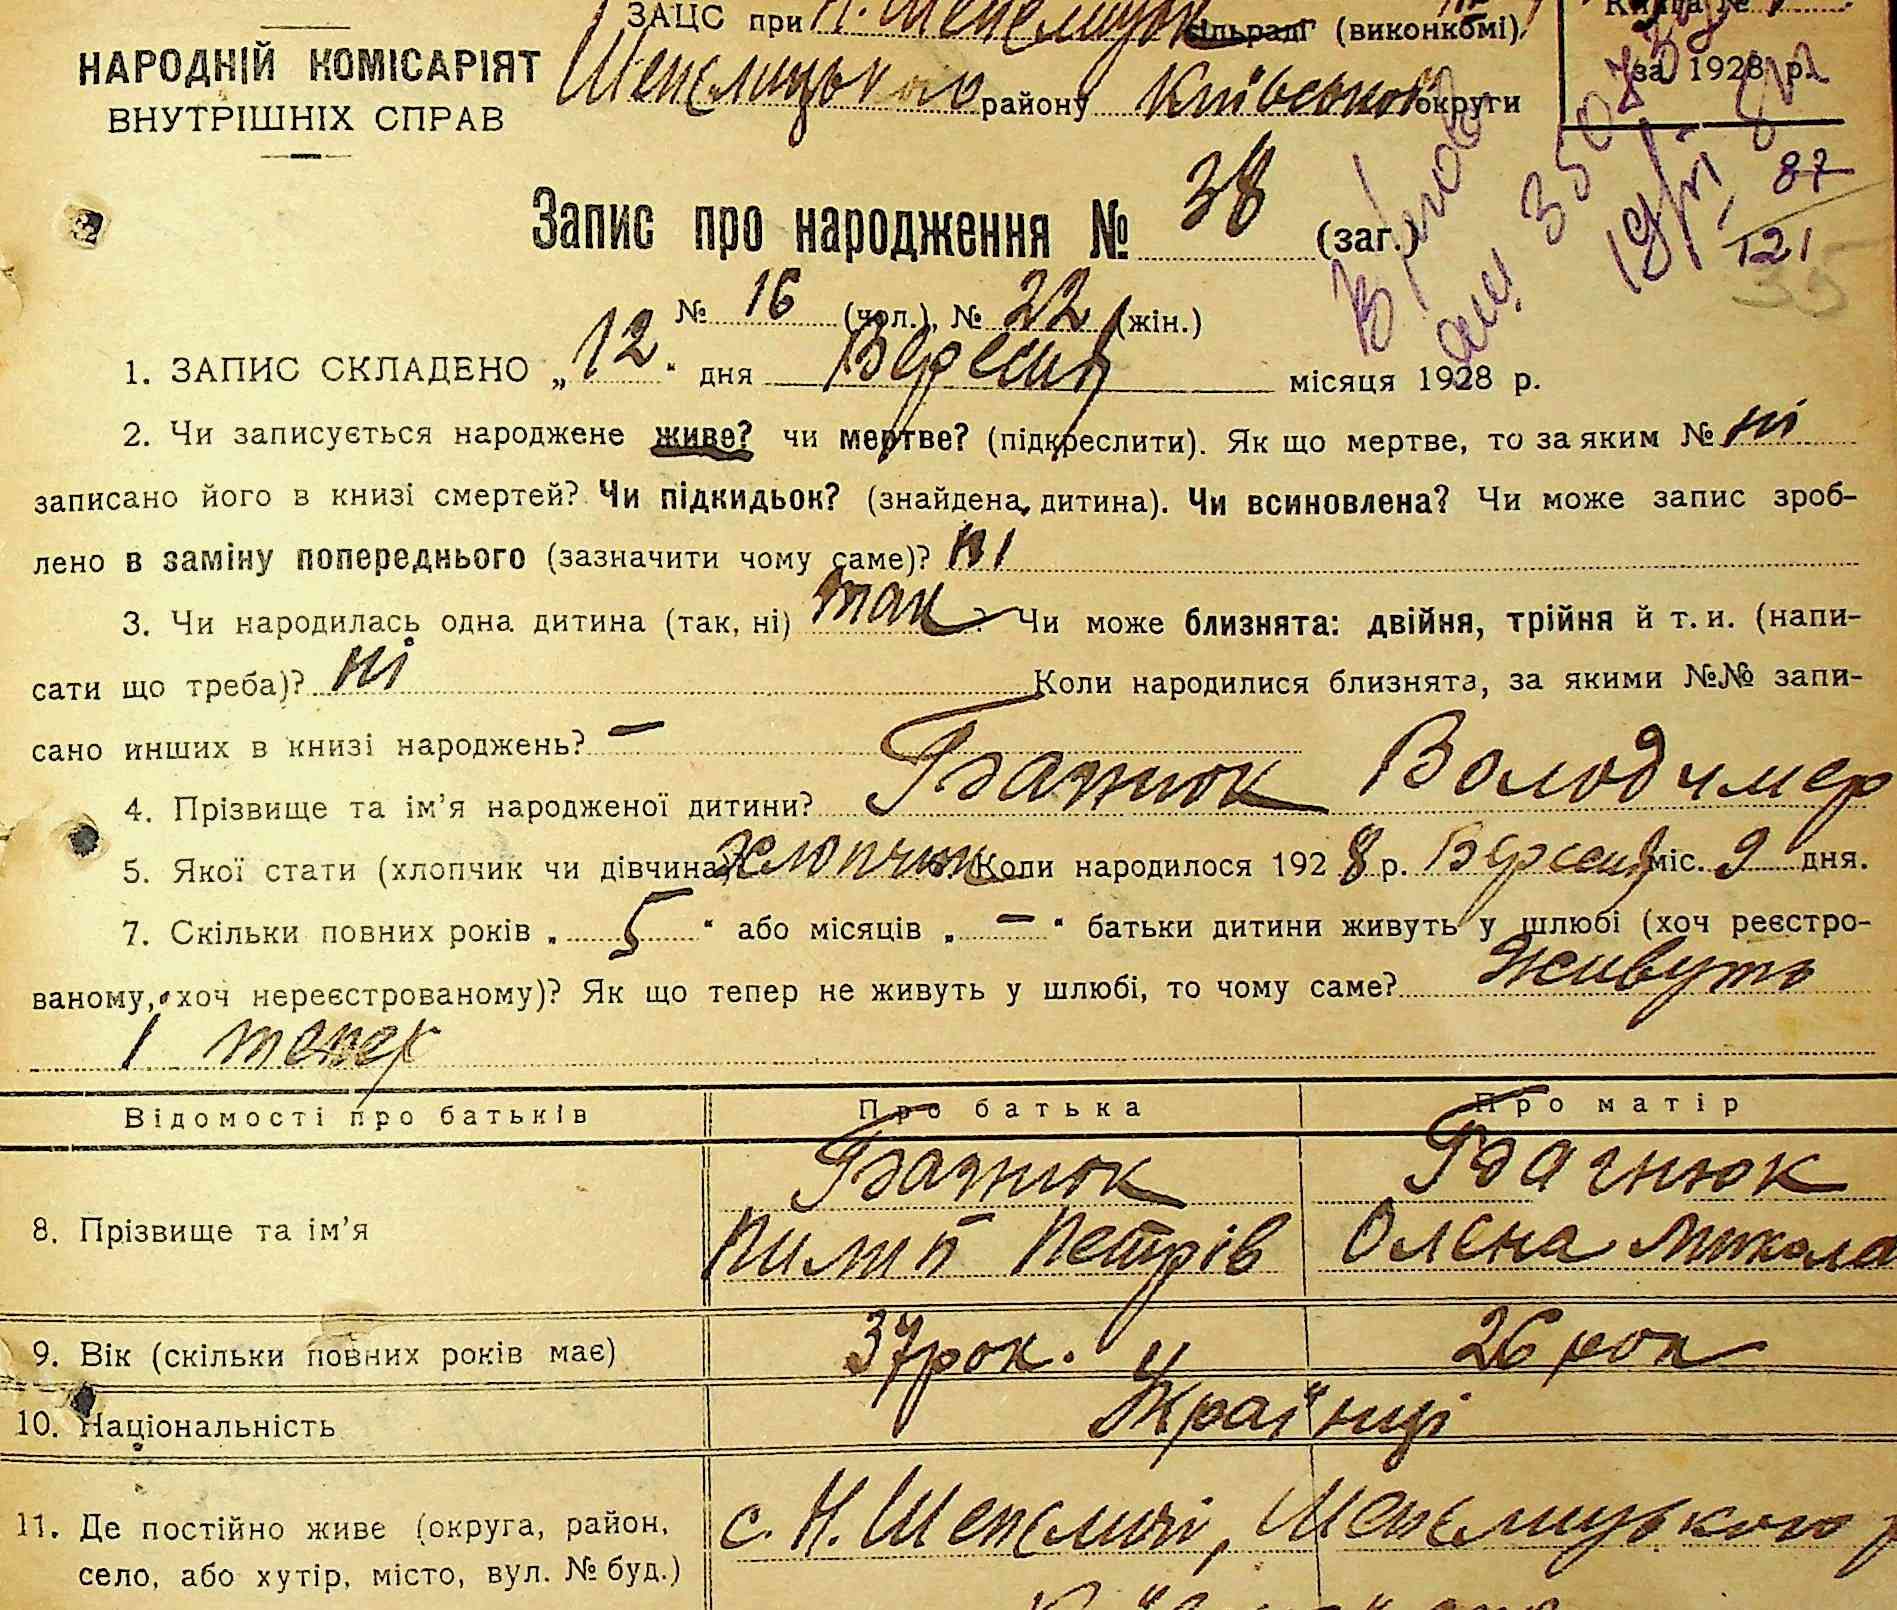 ЗАЦС при Н. Шепелицьк сільраді (виконкомі),
НАРОДНІЙ КОМІСАРІЯТ
ВНУТРІШНІХ СПРАВ
Шепелицького району Київської округи
Книга №
за 1928 р.
87
121
35
Запис про народження № 38 (заг.)
№ 16 (чол.), № 22 (жін.)
1. ЗАПИС СКЛАДЕНО „12“ дня Вересня місяця 1928 р.
2. Чи записується народжене живе? чи мертве? (підкреслити). Як що мертве, то за яким № ні
записано його в книзі смертей? Чи підкидьок? (знайдена дитина). Чи всиновлена? Чи може запис зроб-
лено в заміну попереднього (зазначити чому саме)? ні
3. Чи народилась одна дитина (так, ні) так. Чи може близнята: двійня, трійня й т. и. (напи-
сати що треба)? ні Коли народилися близнята, за якими №№ запи-
сано инших в книзі народжень? —
4. Прізвище та ім’я народженої дитини? Володимер
5. Якої стати (хлопчик чи дівчина) хлопчик Коли народилося 1928 р. Вересня міс. 9 дня.
7. Скільки повних років „5“ або місяців „—“ батьки дитини живуть у шлюбі (хоч реєстро-
ваному, хоч нереєстрованому)? Як що тепер не живуть у шлюбі, то чому саме? Живуть
і тепер
Відомості про батьків Про батька Про матір
8. Прізвище та ім’я
Пилип Петрів Олена Микола
9. Вік (скільки повних років має) 37 рок. 26 рок
10. Національність Українці
11. Де постійно живе (округа, район, с. Н. Шепеличі, Шепелицького р
село, або хутір, місто, вул. № буд.)